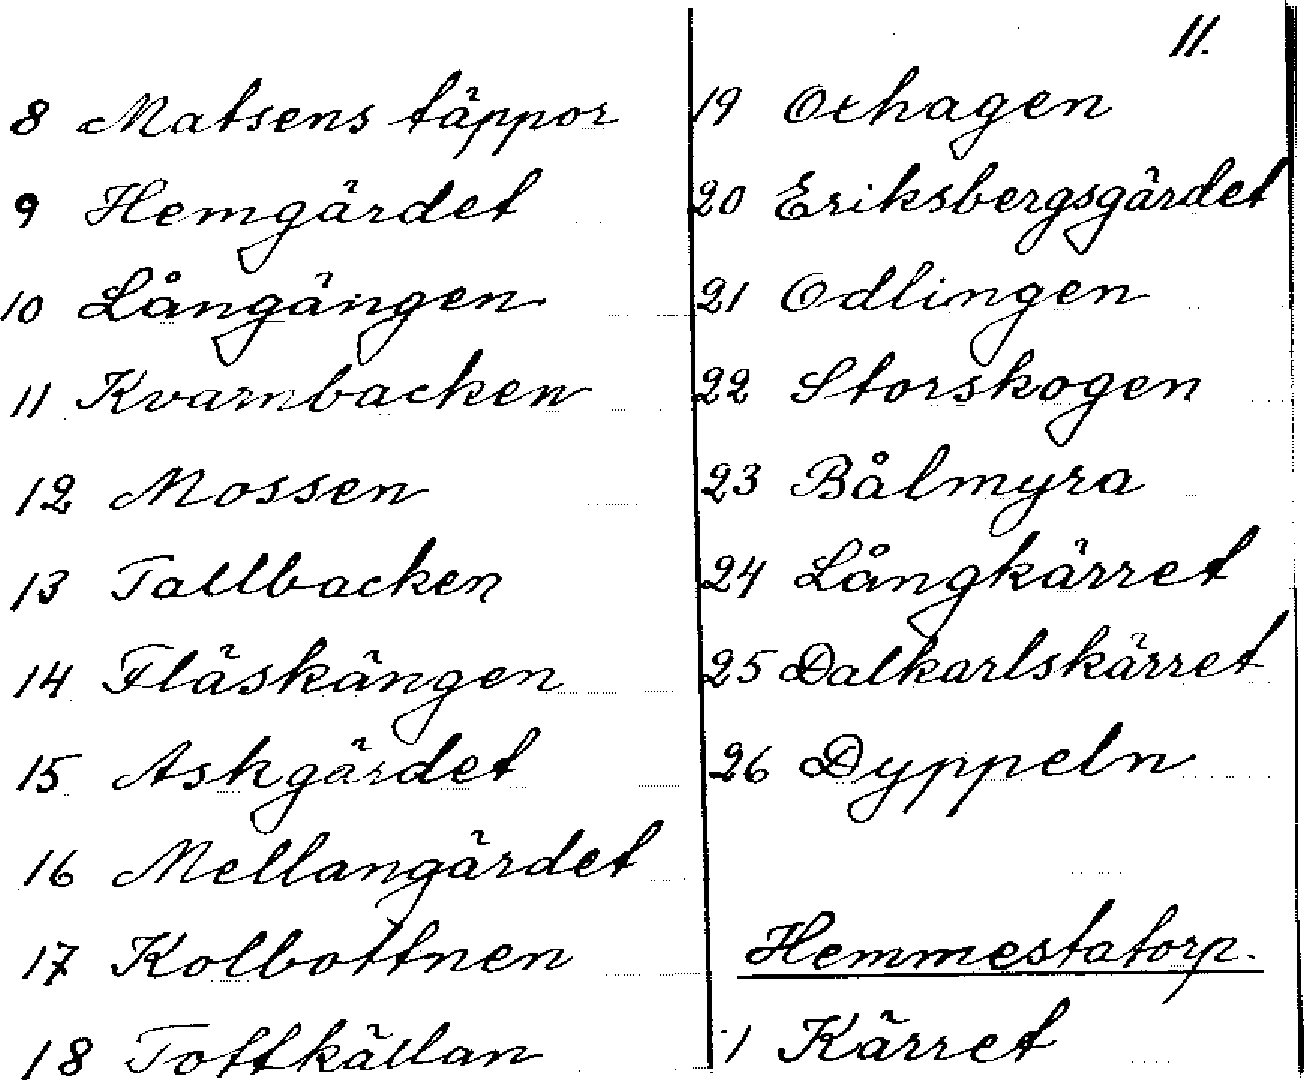 11.
8 Matsens täppor
9 Hemgärdet
10 Långängen
11 Kvarnbacken
12 Mossen
13 Tallbacken
14 Fläskängen
15 Askgärdet
16 Mellangärdet
17 Kolbottnen
18 Toftkällan
19 Oxhagen
20 Eriksbergsgärdet
21 Odlingen
22 Storskogen
23 Bålmyra
24 Långkärret
25 Dalkarlskärret
26 Dyppeln
Hemmestatorp.
1 Kärret